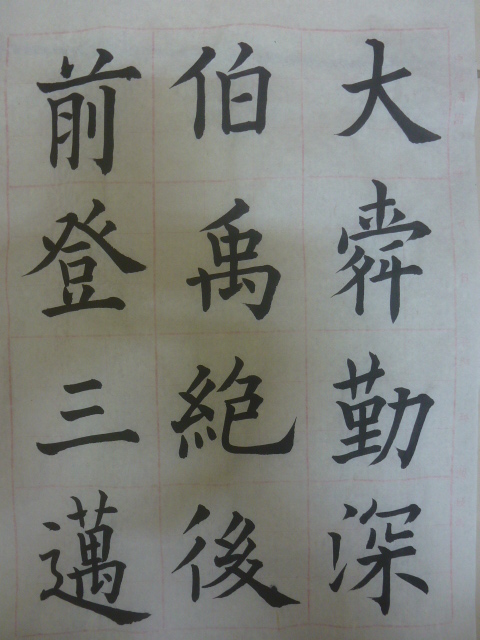 大舜勤深
伯禹絶後
前登三邁